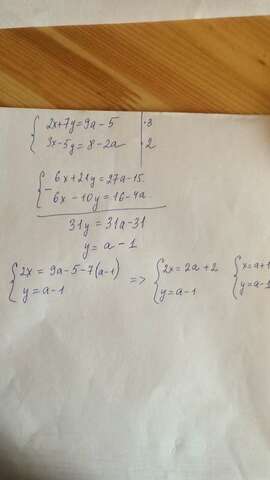 { 2x+7y=9a-5 | ·3
{ 3x-5y=8-2a | ·2
{ 6x+21y=27a-15
- { 6x-10y=16-4a
31y=31a-31
y=a-1
{ 2x=9a-5-7(a-1) => { 2x=2a+2 { x=a+1
{ y=a-1 { y=a-1 { y=a-1